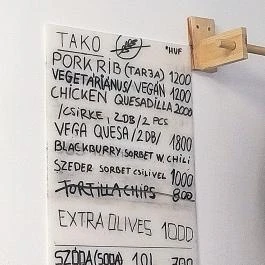 TAKO *HUF
PORK RIB (TARJA) 1200
VEGETÁRIÁNUS/VEGAN 1200
CHICKEN QUESADILLA 2000
/CSIRKE, 2DB/2 PCS
VEGA QUESA/2DB/ 1800
BLACKBURRY SORBET W. CHILI
SZEDER SORBET CSILIVEL 1000
TORTILLA CHIPS 800
EXTRA OLIVES 1000
SZÓDA (SODA) 1.0L 700